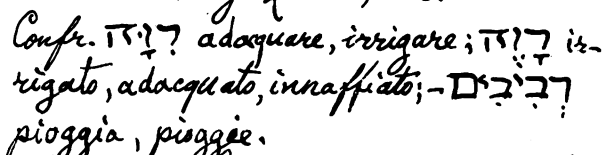 Confr. רִוָּה adacquare, irrigare; רָוֶה ir-
rigato, adacquato, innaffiato; - רְבִיבִים
pioggia, piogge.